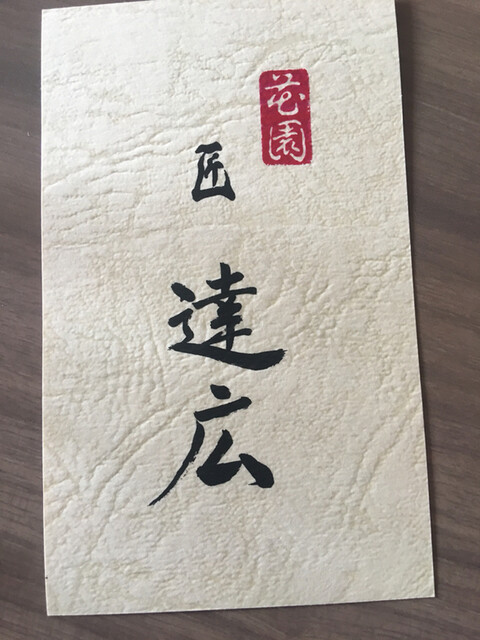 花園
匠
達広